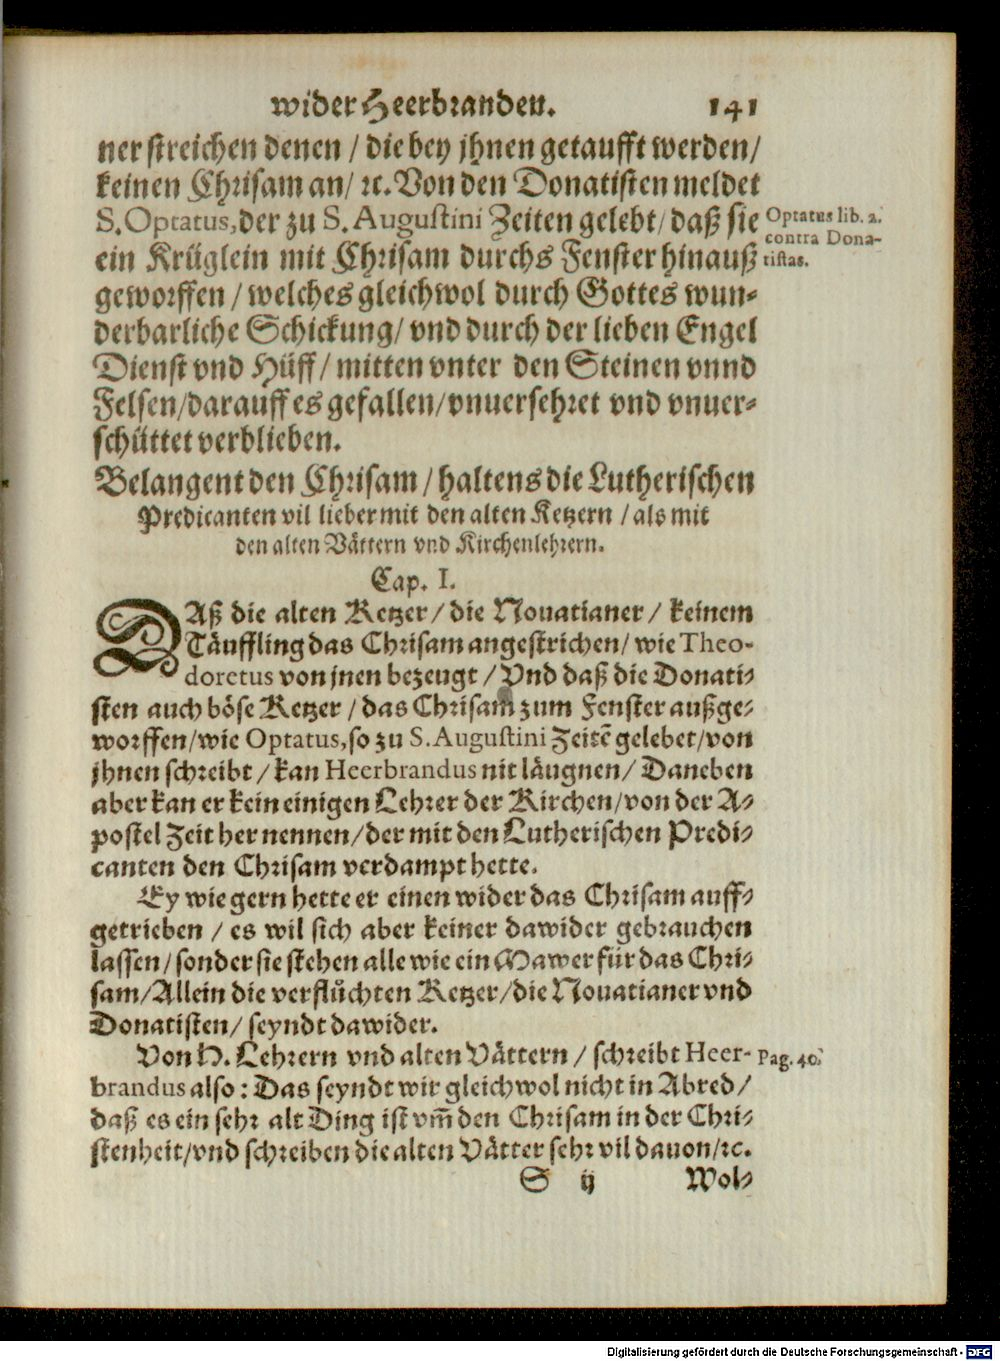 wider Heerbranden. 141
ner streichen denen / die bey jhnen getaufft werden/
keinen Chrisam an/ ꝛc. Von den Donatisten meldet
S. Optatus, der zu S. Augustini Zeiten gelebt/ daß sie
Optatus lib. 2.
contra Dona-
tistas.
ein Krüglein mit Chrisam durchs Fenster hinauß
geworffen / welches gleichwol durch Gottes wun-
derbarliche Schickung/ vnd durch der lieben Engel
Dienst vnd Hüff/ mitten vnter den Steinen vnnd
Felsen/darauff es gefallen/vnuersehret vnd vnuer-
schüttet verblieben.
Belangent den Chrisam / haltens die Lutherischen
Predicanten vil lieber mit den alten Ketzern / als mit
den alten Vättern vnd Kirchenlehrern.
Cap. I.
DAß die alten Ketzer / die Nouatianer / keinem
Täuffling das Chrisam angestrichen/ wie Theo-
doretus von jnen bezeugt / Vnd daß die Donati-
sten auch böse Ketzer / das Chrisam zum Fenster außge-
worffen/wie Optatus, so zu S. Augustini Zeitē gelebet/von
jhnen schreibt / kan Heerbrandus nit läugnen/ Daneben
aber kan er kein einigen Lehrer der Kirchen/von der A-
postel Zeit her nennen/der mit den Lutherischen Predi-
canten den Chrisam verdampt hette.
Ey wie gern hette er einen wider das Chrisam auff-
getrieben / es wil sich aber keiner dawider gebrauchen
lassen/sonder sie stehen alle wie ein Mawer für das Chri-
sam/Allein die verflůchten Ketzer/die Nouatianer vnd
Donatisten/ seyndt dawider.
Von H. Lehrern vnd alten Vättern / schreibt Heer-
Pag. 40.
brandus also: Das seyndt wir gleichwol nicht in Abred/
daß es ein sehr alt Ding ist vm̄ den Chrisam in der Chri-
stenheit/vnd schreiben die alten Vätter sehr vil dauon/ꝛc.
S ij Wol-
Digitalisierung gefördert durch die Deutsche Forschungsgemeinschaft - DFG